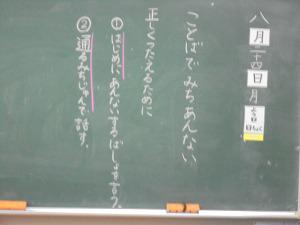 八月二十四日月
よう日
日ちょく
ことばでみちあんない
正しくつたえるために
①はじめにあんないするばしょを言う。
②通るみちじゅんで話す。